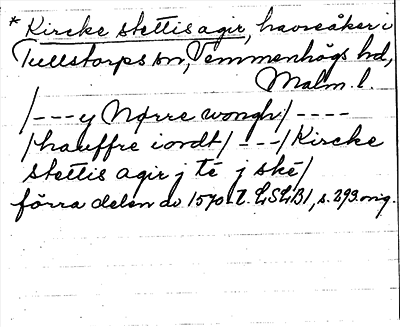 * Kircke stettis agir, havreåker i
Tullstorps sn, Vemmenhögs hd,
Malm. l.
/---y Nørre wongh/----
/hauffre iordt/---/Kircke
stettis agir j té j ské/
förra delen av 1570-t. LSLB1, s. 293 orig.